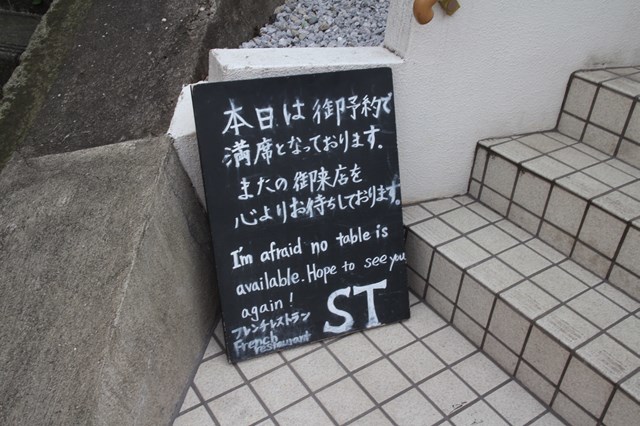 本日は御予約で
満席となっております.
またの御来店を
心よりお待ちしております。
I'm afraid no table is
available. Hope to see you
again!
フレンチレストラン
French
restaurant
ST